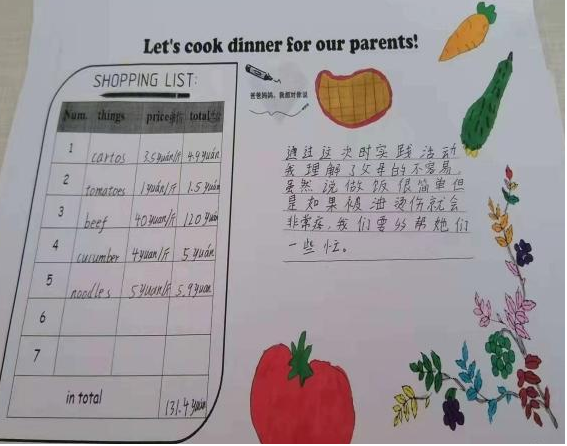 Let's cook dinner for our parents!
SHOPPING LIST:
Num. things price/斤 total/
1 cartos 3.5yuán/斤 4.9yuán
2 tomatoes 1yuán/斤 1.5yuán
3 beef 40yuan/斤 120yuán
4 cucumber 4yuan/斤 5yuán
5 noodles 5yuan/斤 5.9yuan
6
7
in total 131.4yuán
爸爸妈妈，我想对你说
通过这次时实践活动
我理解了父母的不容易，
虽然说做饭很简单但
是如果被油烫伤就会
非常疼，我们要多帮她们
一些忙。